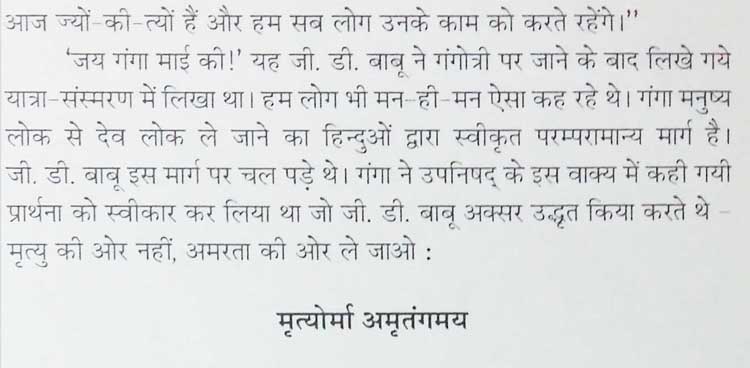 आज ज्यों-की-त्यों हैं और हम सब लोग उनके काम को करते रहेंगे।”
‘जय गंगा माई की!’ यह जी. डी. बाबू ने गंगोत्री पर जाने के बाद लिखे गये
यात्रा-संस्मरण में लिखा था। हम लोग भी मन-ही-मन ऐसा कह रहे थे। गंगा मनुष्य
लोक से देव लोक ले जाने का हिन्दुओं द्वारा स्वीकृत परम्परामान्य मार्ग है।
जी. डी. बाबू इस मार्ग पर चल पड़े थे। गंगा ने उपनिषद् के इस वाक्य में कही गयी
प्रार्थना को स्वीकार कर लिया था जो जी. डी. बाबू अक्सर उद्धृत किया करते थे –
मृत्यु की ओर नहीं, अमरता की ओर ले जाओ :
मृत्योर्मा अमृतंगमय